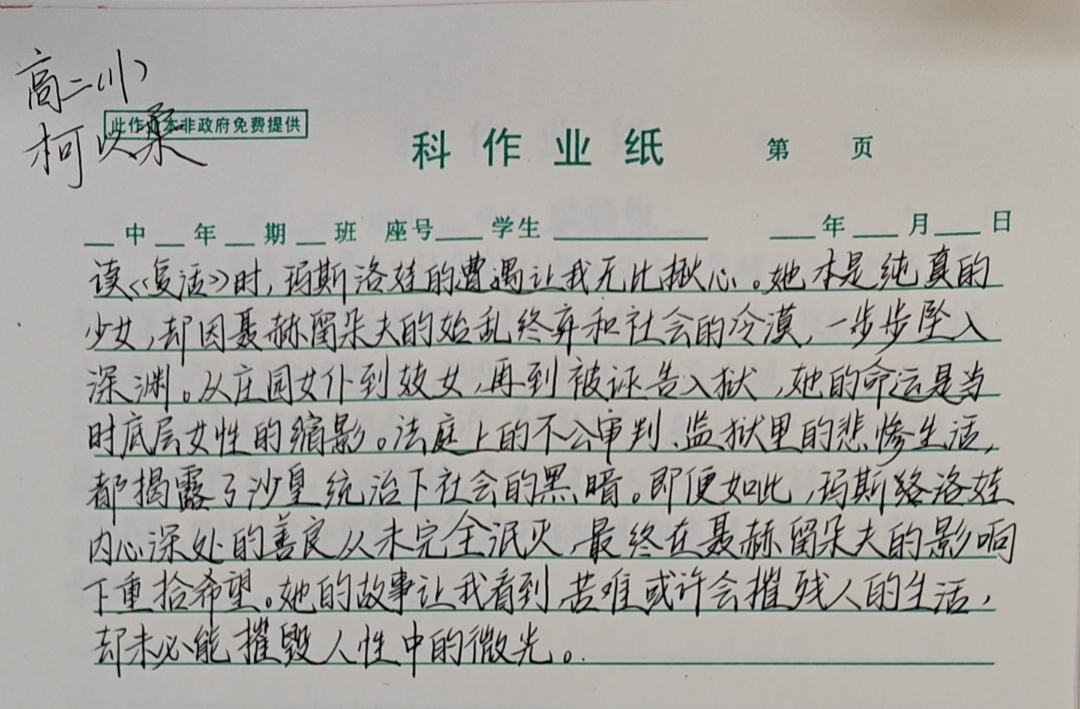 高二(11)
柯以桑
此作业本非政府免费提供
科作业纸
第 页
中 年 期 班 座号 学生 年 月 日
读《复活》时,玛斯洛娃的遭遇让我无比揪心。她本是纯真的
少女,却因聂赫留朵夫的始乱终弃和社会的冷漠,一步步坠入
深渊。从庄园女仆到妓女,再到被诬告入狱,她的命运是当
时底层女性的缩影。法庭上的不公审判、监狱里的悲惨生活,
都揭露了沙皇统治下社会的黑暗。即便如此,玛斯络洛娃
内心深处的善良从未完全泯灭,最终在聂赫留朵夫的影响
下重拾希望。她的故事让我看到,苦难或许会摧残人的生活,
却未必能摧毁人性中的微光。